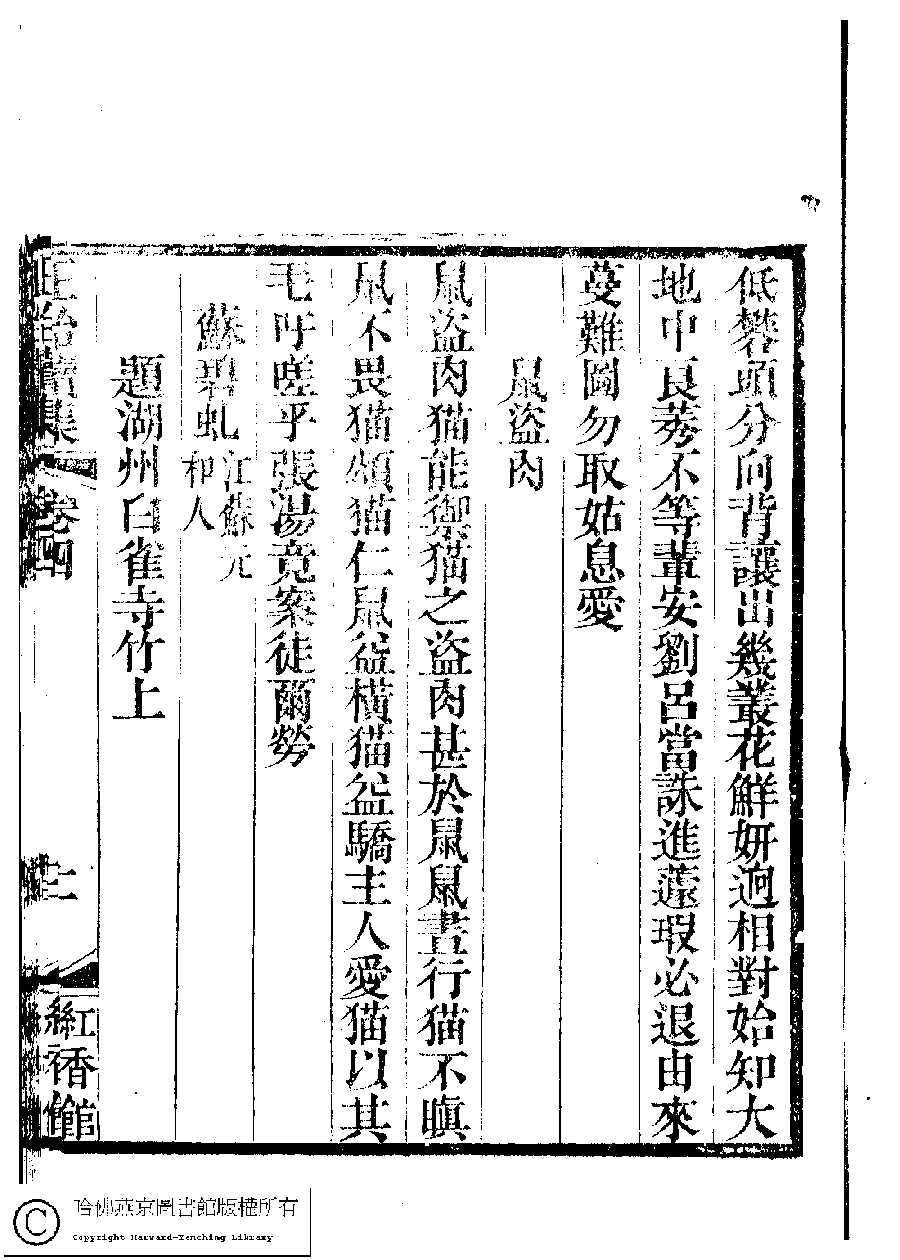 低礬頭分向背讓出幾叢花鮮妍迥相對始知大
地中良莠不等輩安劉呂當誅進蘧瑕必退由來
蔓難圖勿取姑息愛
鼠盜肉
鼠盜肉猫能禦猫之盜肉甚於鼠鼠晝行猫不瞋
鼠不畏猫頌猫仁鼠益橫猫益驕主人愛猫以其
毛吁嗟乎張湯竟案徒爾勞
蘇碧虬江蘇元和人
題湖州白雀寺竹上
正始續集 卷四
紅香館
哈佛燕京圖書館版權所有
Copyright Harvard-Yenching Library